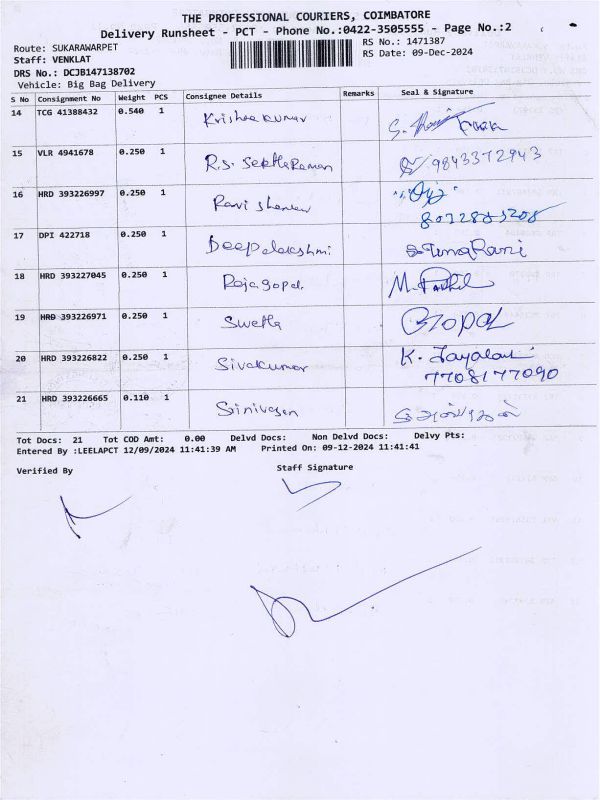 THE PROFESSIONAL COURIERS, COIMBATORE
Delivery Runsheet - PCT - Phone No.:0422-3505555 - Page No.:2
Route: SUKARAWARPET
RS No.: 1471387
Staff: VENKLAT
RS Date: 09-Dec-2024
DRS No.: DCJB147138702
Vehicle: Big Bag Delivery
S No Consignment No Weight PCS Consignee Details Remarks Seal & Signature
14 TCG 41388432 0.540 1 Krishna kumar
15 VLR 4941678 0.250 1 R.S. 9843372943
16 HRD 393226997 0.250 1 Ravi shankar
17 DPI 422718 0.250 1 Deepalakshmi
18 HRD 393227045 0.250 1 Rajagopal
19 HRD 393226971 0.250 1 Swetha Gopal
20 HRD 393226822 0.250 1 Sivakumar K.
7708177090
21 HRD 393226665 0.110 1 Srinivasan
Tot Docs: 21 Tot COD Amt: 0.00 Delvd Docs: Non Delvd Docs: Delvy Pts:
Entered By :LEELAPCT 12/09/2024 11:41:39 AM Printed On: 09-12-2024 11:41:41
Verified By
Staff Signature